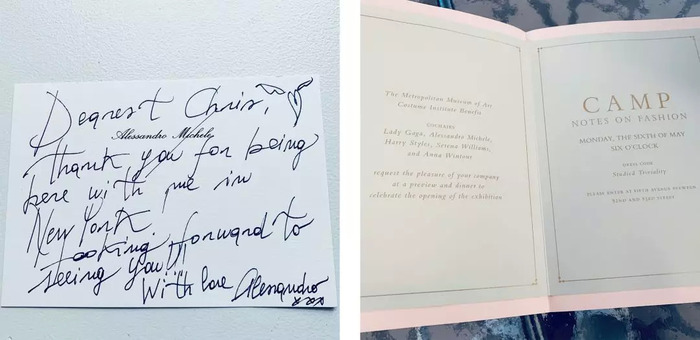 Dearest Chris,
Alessandro Michele
Thank you for being
here with me in
New York!
Looking forward to
seeing you!!!
With love Alessandro
xxx
The Metropolitan Museum of Art
Costume Institute Benefit
COCHAIRS
Lady Gaga, Alessandro Michele,
Harry Styles, Serena Williams,
and Anna Wintour
request the pleasure of your company
at a preview and dinner to
celebrate the opening of the exhibition
CAMP
NOTES ON FASHION
MONDAY, THE SIXTH OF MAY
SIX O'CLOCK
DRESS CODE
Studied Triviality
PLEASE ENTER AT FIFTH AVENUE BETWEEN
82ND AND 83RD STREETS